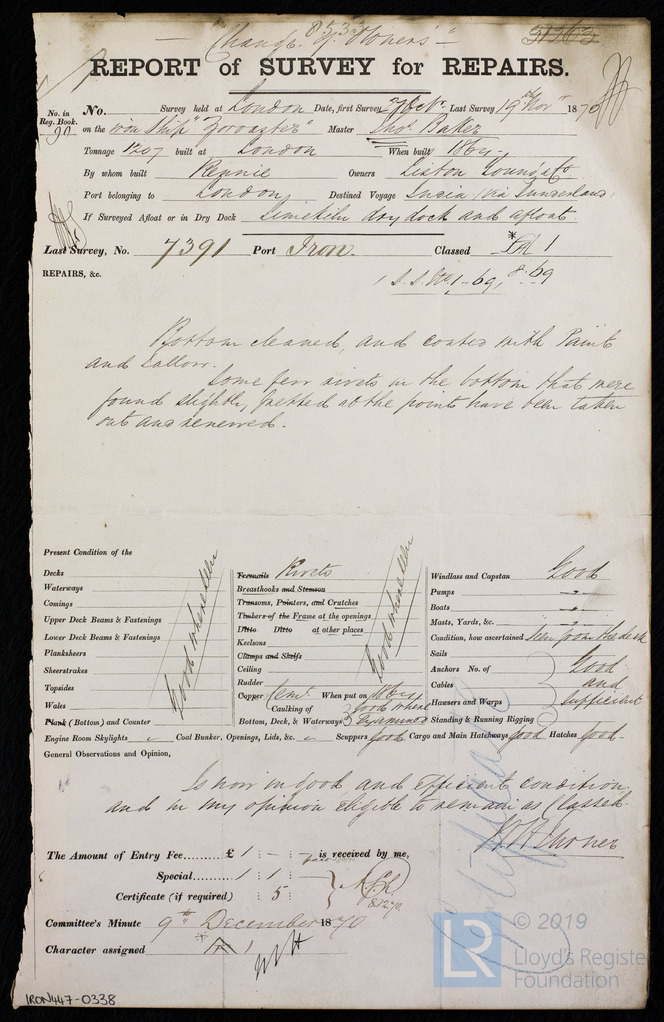 8533
51263
Change of Owners
REPORT of SURVEY for REPAIRS.
No. in Reg. Book. 90
No. Survey held at London Date, first Survey 7 Oct. Last Survey 19th Novr 1870
on the iron Ship "Zoroaster" Master Thos. Baker
Tonnage 1207 built at London When built 1864
By whom built Rennie Owners Liston Young & Co
Port belonging to London Destined Voyage India (via Sunderland)
If Surveyed Afloat or in Dry Dock Limekiln dry dock and afloat
Last Survey, No. 7391 Port Iron. Classed 1
REPAIRS, &c.
Bottom cleaned, and coated with Paint
and Tallow.
Some few rivets in the bottom that were
found slightly fretted at the points have been taken
out and renewed.
Present Condition of the
Decks
Waterways
Comings
Upper Deck Beams & Fastenings
Lower Deck Beams & Fastenings
Planksheers
Sheerstrakes
Topsides
Wales
Plank (Bottom) and Counter
Good where seen
Treenails Rivets
Breasthooks and Stemson
Transoms, Pointers, and Crutches
Timbers of the Frame at the openings
Ditto Ditto at other places
Keelsons
Clamps and Shelfs
Ceiling
Rudder
Good where seen
Copper Cemt. When put on
Caulking of Bottom, Deck, & Waterways good where examined
Windlass and Capstan Good
Pumps "
Boats "
Masts, Yards, &c. "
Condition, how ascertained Seen from the deck
Sails
Anchors No. of
Cables
Hawsers and Warps
Standing & Running Rigging
Good and sufficient
Engine Room Skylights Coal Bunker, Openings, Lids, &c. Scuppers good Cargo and Main Hatchways good Hatches good
General Observations and Opinion,
Is now in good and efficient condition,
and in my opinion eligible to remain as Classed.
The Amount of Entry Fee......£ 1 : - : is received by me,
Special 1 : 1 :
Certificate (if required) : 5
8.12.70
Committee's Minute 9th December 1870
Character assigned A 1
Certificate
LR
© 2019
Lloyd's Register
Foundation
IRON447-0338